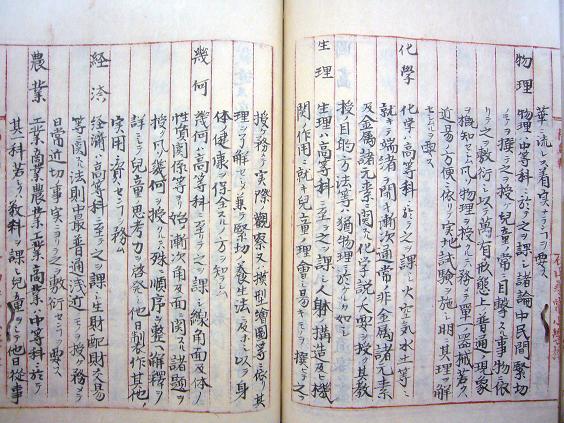 華ニ流レズ着実ナランコヲ要ス
物理
物理ハ中等科ニ於テ之ヲ課シ諸論中民間緊切
ノモノヲ撰ミ之ヲ授ケ児童ノ常ニ目撃スル事物ニ依
リテ之ヲ敷衍シ以テ萬有
普通ノ現象
ヲ推知セシム凡物理ヲ授クルニハ務メテ単一ノ器械若クハ
近易ノ方便ニ依リ実地試験ヲ施シ明ニ其理ヲ解
セシムルヲ要ス
化學
化学ハ高等科ニ於テ之ヲ課シ火空気水土等ニ
就キ端緒ヲ開キ漸次通常ノ非金属諸元素
及金属諸元素ニ関スル化学説ノ大要ヲ授ク其教
授ノ目的方法等ハ猶物理ニ於ケルカ如シ
生理
生理ハ高等科ニ至テ之ヲ課シ人躰ノ構造及ヒ機
関ノ作用ニ就キ児童ノ理會シ易キモノヲ撰ミテ之ヲ
授ク務メテ実際ノ観察又ハ模型繪図等ニ依テ其
理ヲ了解セシメ兼テ緊切ノ養生法ニ及ホシ以テ身
体ノ健康ヲ保全スルノ方ヲ知ラシム
幾何
幾何ハ高等科ニ至テ之ヲ課シ線角面及体ノ
性質関係等ヨリ始メ漸次角及面ニ関スル諸題ヲ
授ク凡幾何ヲ授クルニハ殊ニ順序ヲ整ヘ解釋ヲ
詳ニシ児童ノ思考力ヲ啓発シ他日製作其他ノ
実用ニ資センコヲ務ム
経済
経済ハ高等科ニ至テ之ヲ課シ生財配財交易
等ニ関スル法則ノ最普通浅近ノモノヲ授ケ務メテ
日常近切ノ事実ニヨリテ之ヲ敷衍センコヲ要ス
農業
工業
商業
農業工業商業ハ中等科ニ於テ
其一科若クハ数科ヲ課シ児童ヲシテ他日従事